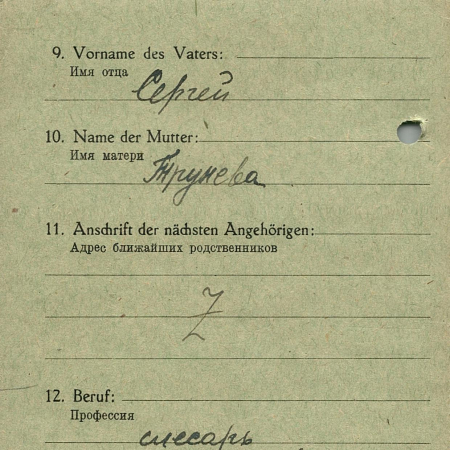 9. Vorname des Vaters:
Имя отца
Сергей
10. Name der Mutter:
Имя матери
Трунева
11. Anschrift der nächsten Angehörigen:
Адрес ближайших родственников
12. Beruf:
Профессия
слесарь